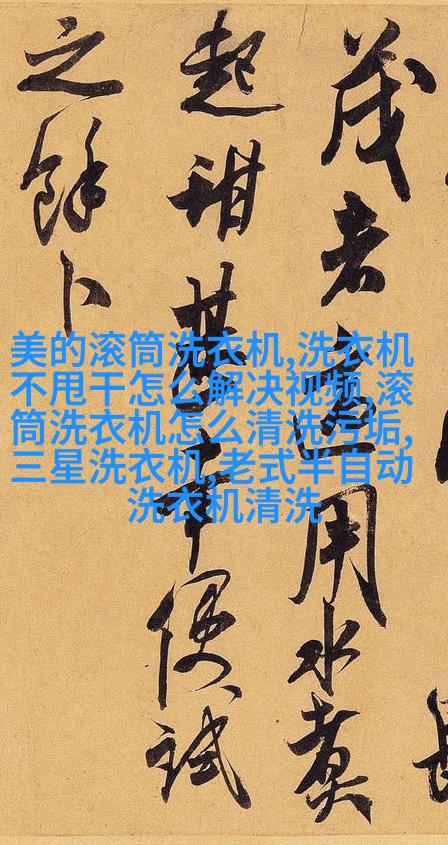 茂者用水煮
起甜甚本便試
之餘卜
美的滚筒洗衣机,洗衣机
不甩干怎么解决视频,滚
筒洗衣机怎么清洗污垢,
三星洗衣机,老式半自动
洗衣机清洗